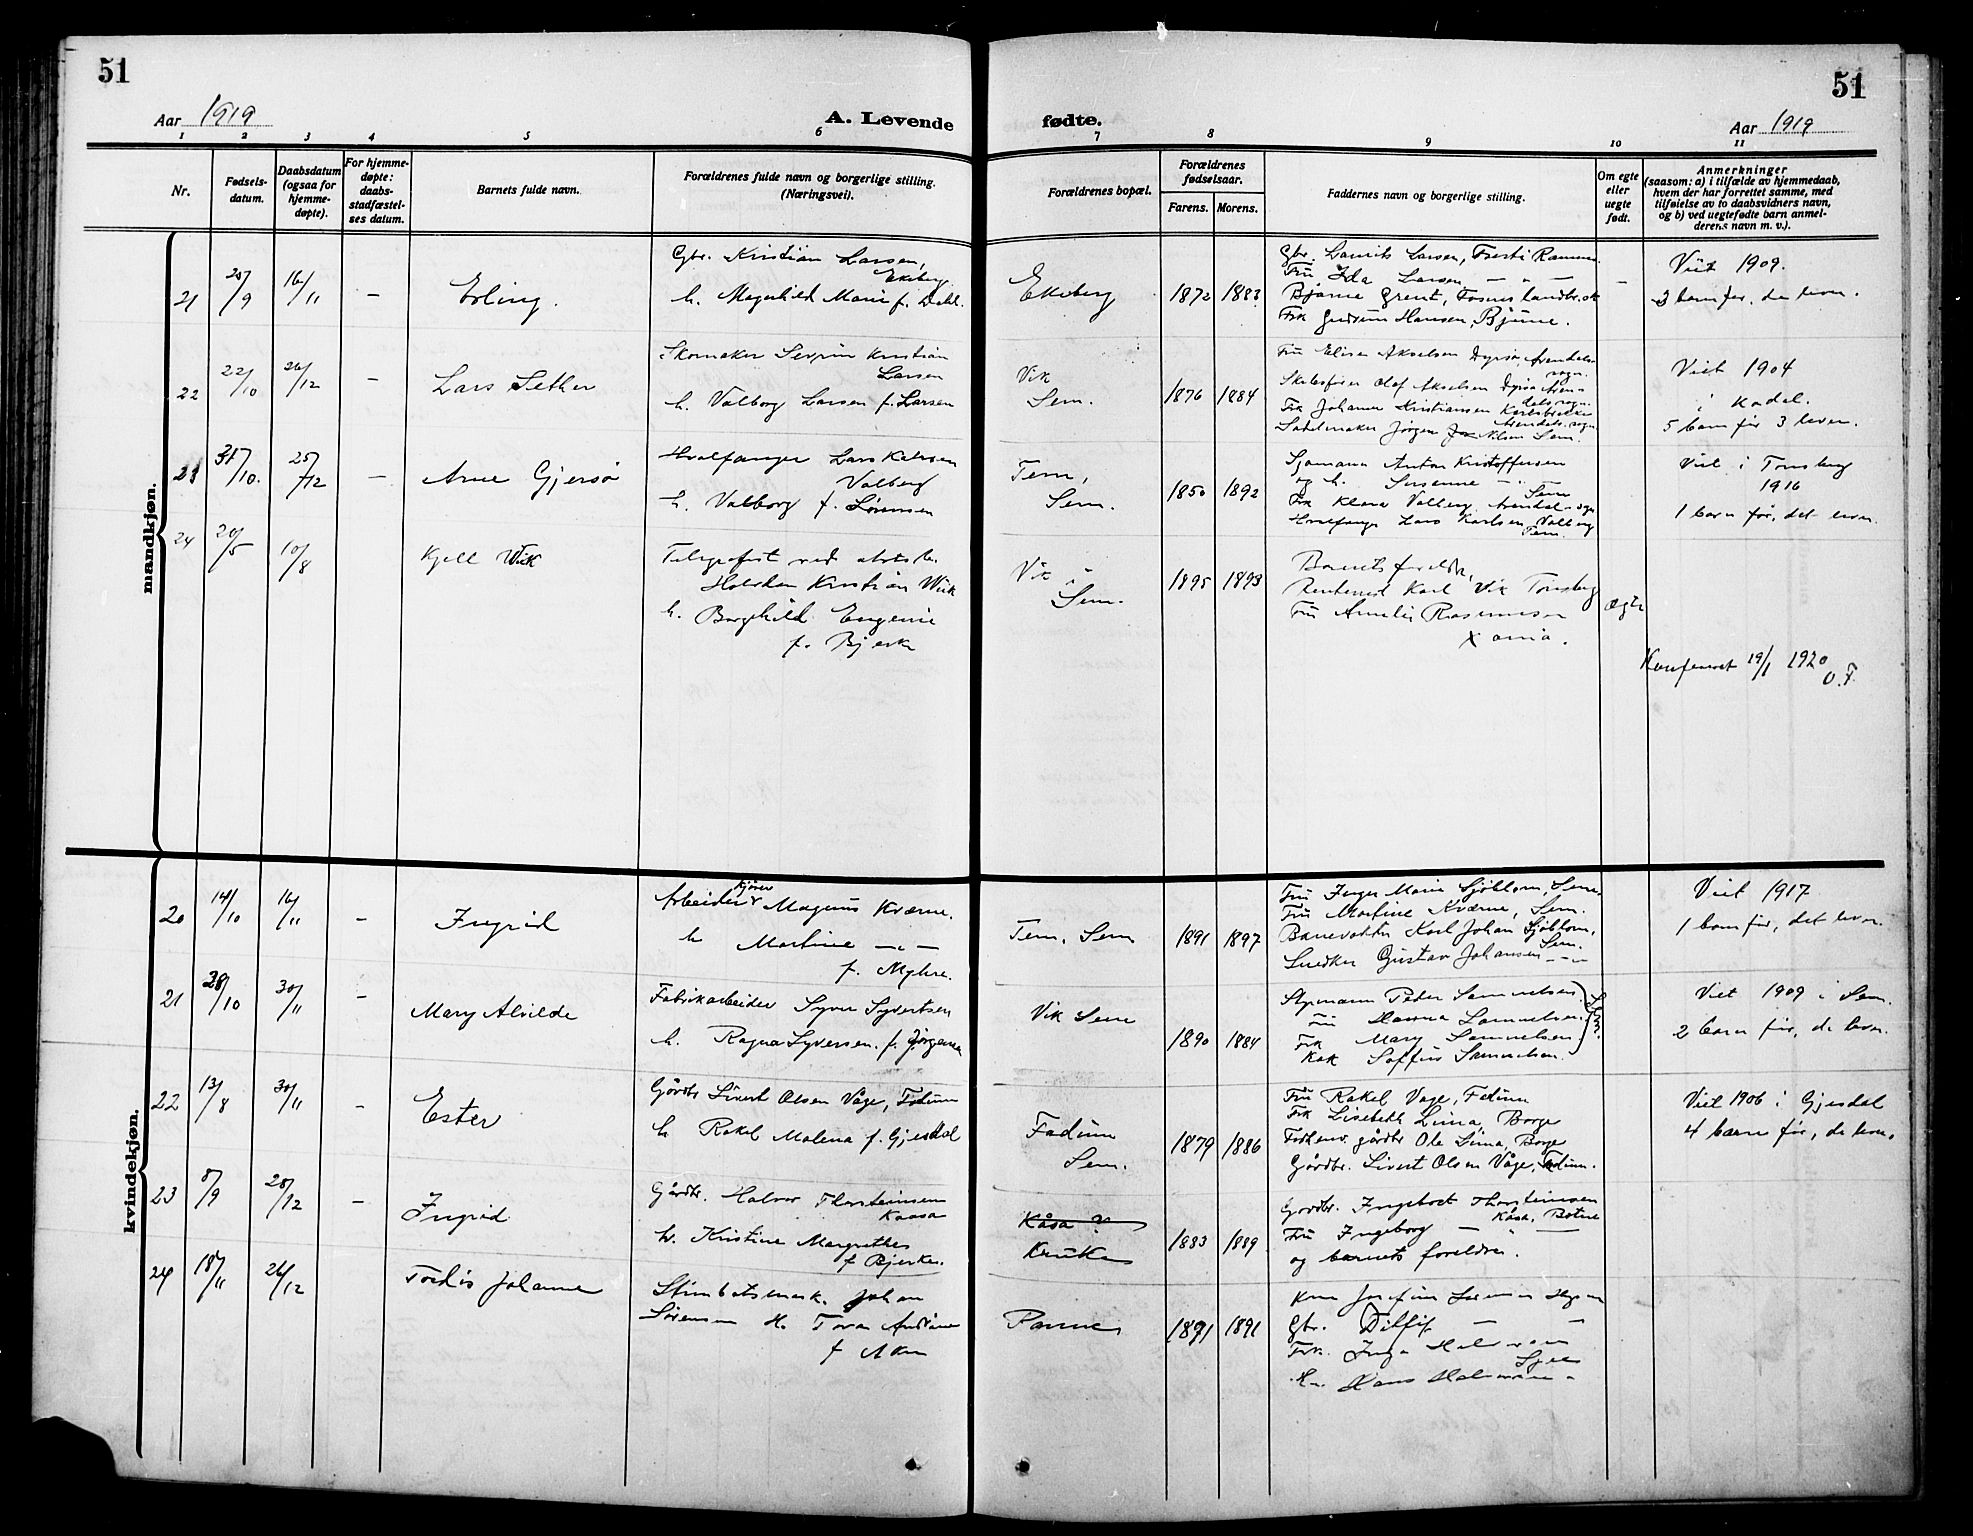 51
51
Aar 1919
A. Levende
fødte.
Aar 1919
1 2 3 4 5 6 7 8 9 10 11
Nr.
Fødsels-
datum.
Daabsdatum
(ogsaa for
hjemme-
døpte).
For hjemme-
døpte:
daabs-
stadfæstel-
ses datum.
Barnets fulde navn.
Forældrenes fulde navn og borgerlige stilling.
(Næringsvei).
Forældrenes bopæl.
Forældrenes
fødselsaar.
Farens. Morens.
Faddernes navn og borgerlige stilling.
Om egte
eller
uegte
født.
Anmerkninger
(saasom: a) i tilfælde av hjemmedaab,
hvem der har forrettet samme, med
tilføielse av to daabsvidners navn,
og b) ved uegtefødte barn anmel-
derens navn m. v.).
mandkjøn.
21
20/9
16/11
–
Erling.
Gbr. Kristian Larsen,
Ekeberg
h. Magnhild Marie f. Dahl.
Ekeberg
1872 1883
Gbr. Larsen,
Fru Ida Larsen – " –
Bjarne Grent,
Frk Gudrun Hansen, Bjune.
–
Viet 1909.
3 barn før, de lever.
22
22/10
26/12
–
Lars Sether
Skomaker Sevrin Kristian
Larsen
h. Valborg Larsen f. Larsen
Vik
Sem.
1876 1884
Fru Elise Akselsen
sogn.
Olaf Akselsen
Frk Johanne Kristiansen
Sadelmaker Jørgen Nilsen Sem.
Viet 1904
i
5 barn før 3 lever.
23
31/10.
25/12
–
Arne Gjersø
Hvalfanger Lars Karlsen
Valberg
h. Valborg f. Sørensen
Tem,
Sem.
1850 1892
Sjømann Anton Kristoffersen
og h. Susanne – " –
Sem
Frk Klara Valberg,
Hvalfanger Lars Karlsen Valberg
Tem.
Viet i Tønsberg
1916
1 barn før, det lever.
24
20/5
10/8
Kjell Wiik
Telegrafist ved
Kristian Wiik
h. Borghild Eugenie
f. Bjerk
Vik i
Sem.
1895 1893
Barnets foreldre,
Karl Vik Tønsberg
Fru Amelie Rasmussen
X ania.
ægte
Konfereret 19/1 1920
O. F.
kvindekjøn.
20
14/10
16/11
–
Ingrid
kjører
Arbeider v Magnus Kværne.
h Martine – " –
f. Myhre.
Tem, Sem
1891 1897
Fru Inger Marie Sjøblom, Sem,
Fru Martine Kværne, Sem.
Banevokter Karl Johan Sjøblom,
Sem.
Snedker Gustav Johansen – " –
Viet 1917
1 barn før, det lever.
21
28/10
30/11
–
Mary Alvilde
Fabrikarbeider Syver Syvertsen
h. Ragna Syversen. f. Jørgensen
Vik Sem
1890 1884
Styrmann Peder Samuelsen
Fru Hanna Samuelsen
Frk Mary Samuelsen
Kok Soffus Samuelsen.
Sem.
Viet 1909 i Sem.
2 barn før, de lever.
22
13/8
30/11
–
Ester
Gårdbr Sivert Olsen Våge, Fadum
h. Rakel Malena f. Gjesdal
Fadum
Sem.
1879 1886
Fru Rakel Vage, Fadum
Frk Lisebeth Lima, Borge
gårdbr Ole Lima, Borge
Gårdbr. Sivert Olsen Våge, Fadum.
Viet 1906 i Gjesdal
4 barn før, de lever.
23
8/9
28/12
–
Ingrid
Gårdbr. Halvor Thorsteinsen
Kaasa
h. Kristine Margrethe
f Bjerke.
Kåsa ?
1883 1889
Gårdbr. Ingebret Thorsteinsen
Kåsa, Botne
Fru Ingeborg – " –
og barnets foreldre.
24
18/11
26/12
Tordis Johanne
Johan
Sørensen H. Tora Andrine
f Aker
1891 1891
Gbr. – –
Frk. Inga
Hans